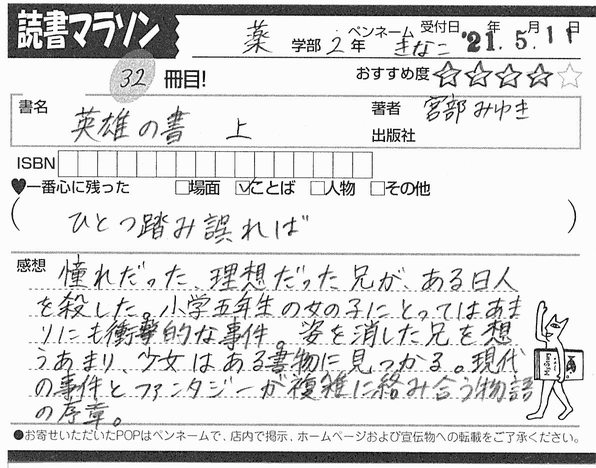 読書マラソン
薬 学部 2 年 ペンネーム きなこ 受付日 '21年 5月 11日
32 冊目! おすすめ度 ★★★★☆
書名 英雄の書 上 著者 宮部みゆき
出版社
ISBN
♥一番心に残った □場面 ☑ことば □人物 □その他
( ひとつ踏み誤れば )
感想 憧れだった、理想だった兄が、ある日人
を殺した。小学五年生の女の子にとってはあま
りにも衝撃的な事件。姿を消した兄を想
うあまり 少女はある書物に見つかる。現代
の事件とファンタジーが複雑に絡み合う物語
の序章。
●お寄せいただいたPOPはペンネームで、店内で掲示、ホームページおよび宣伝物への転載をご了承ください。